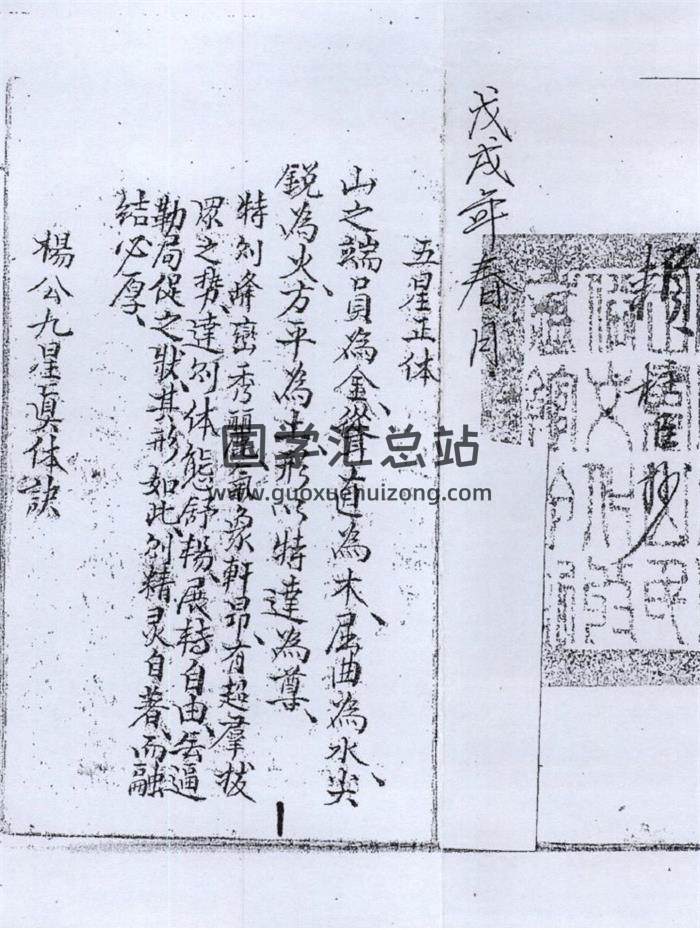 臣抄
戊戌年春月
五星正体
山之端員為金、聳直為木、屈曲為水、尖
銳為火、方平為土、形以特達為尊、
特则峰巒秀麗、氣象軒昂、有超羣拔
眾之勢、達则体態舒揚、展轉自由、無逼
勒局促之狀、其形如此、则精灵自著、而融
結必厚、
楊公九星真体訣
国学汇总站
www.guoxuehuizong.com